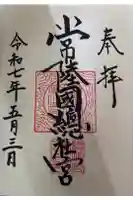 奉拝
常陸國總社宮
令和七年五月三日